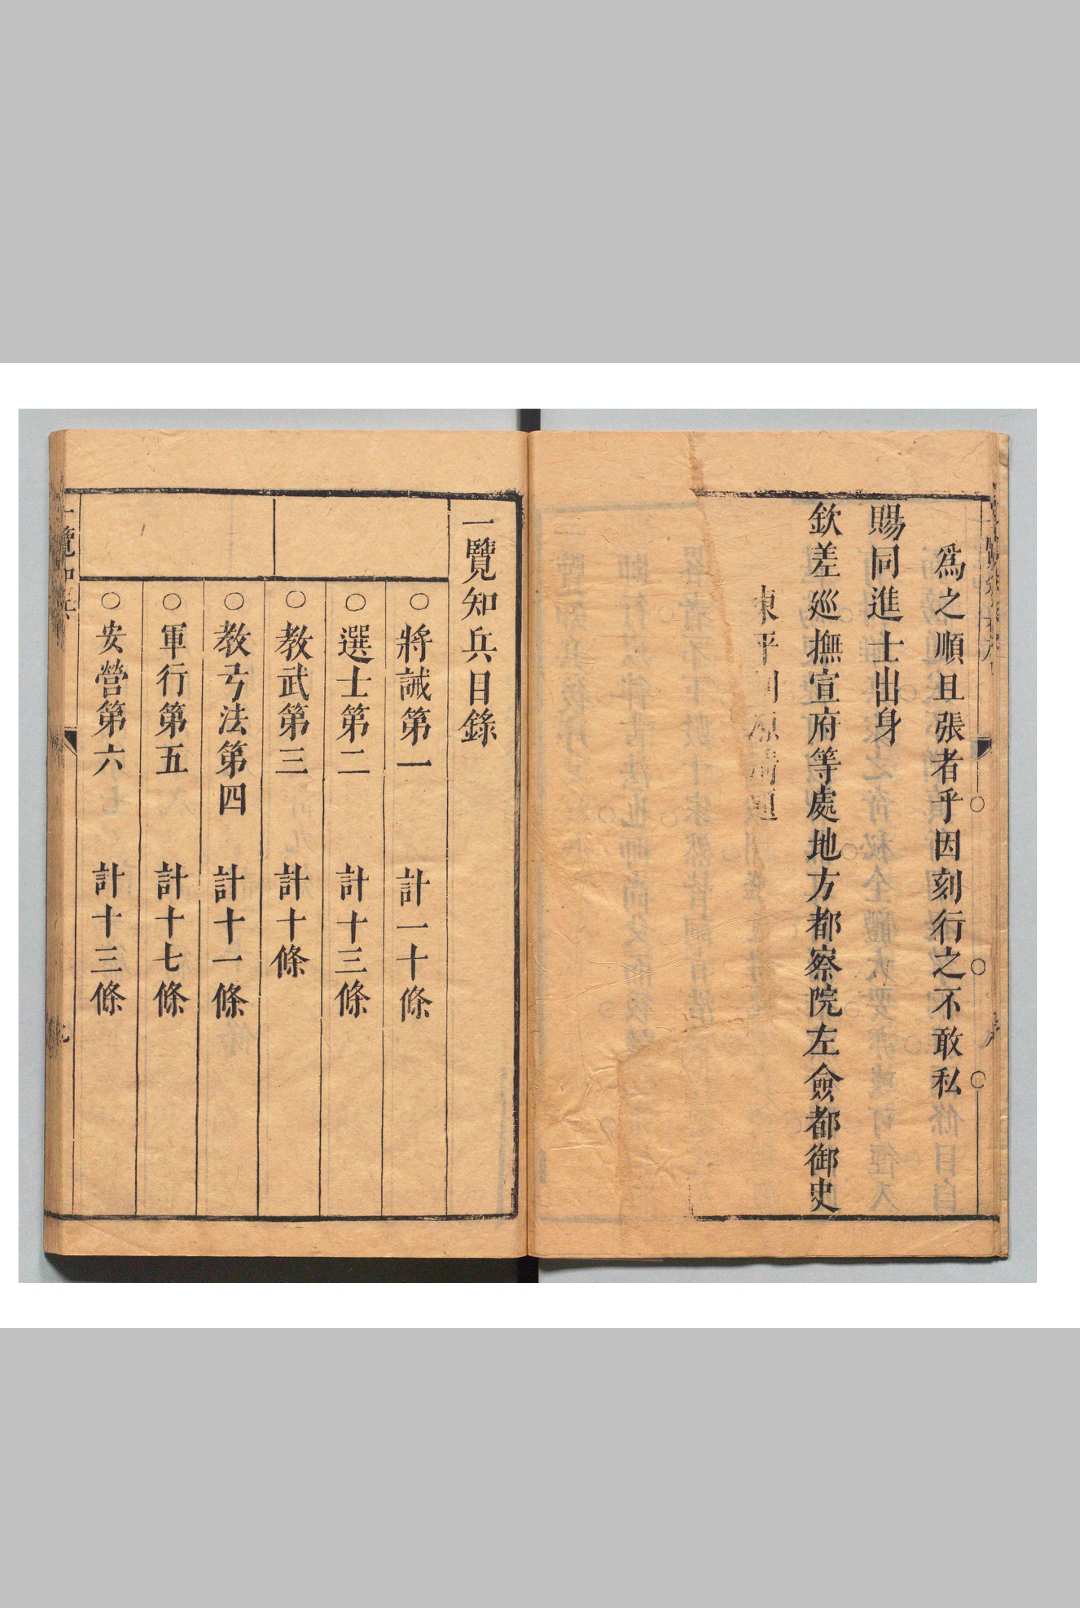 爲之順且張者乎因刻行之不敢私
賜同進士出身
欽差廵撫宣府等處地方都察院左僉都御史
東平
一覽知兵目錄
○將誡第一 計一十條
○選士第二 計十三條
○教武第三 計十條
○教弓法第四 計十一條
○軍行第五 計十七條
○安營第六 計十三條
一覽知兵